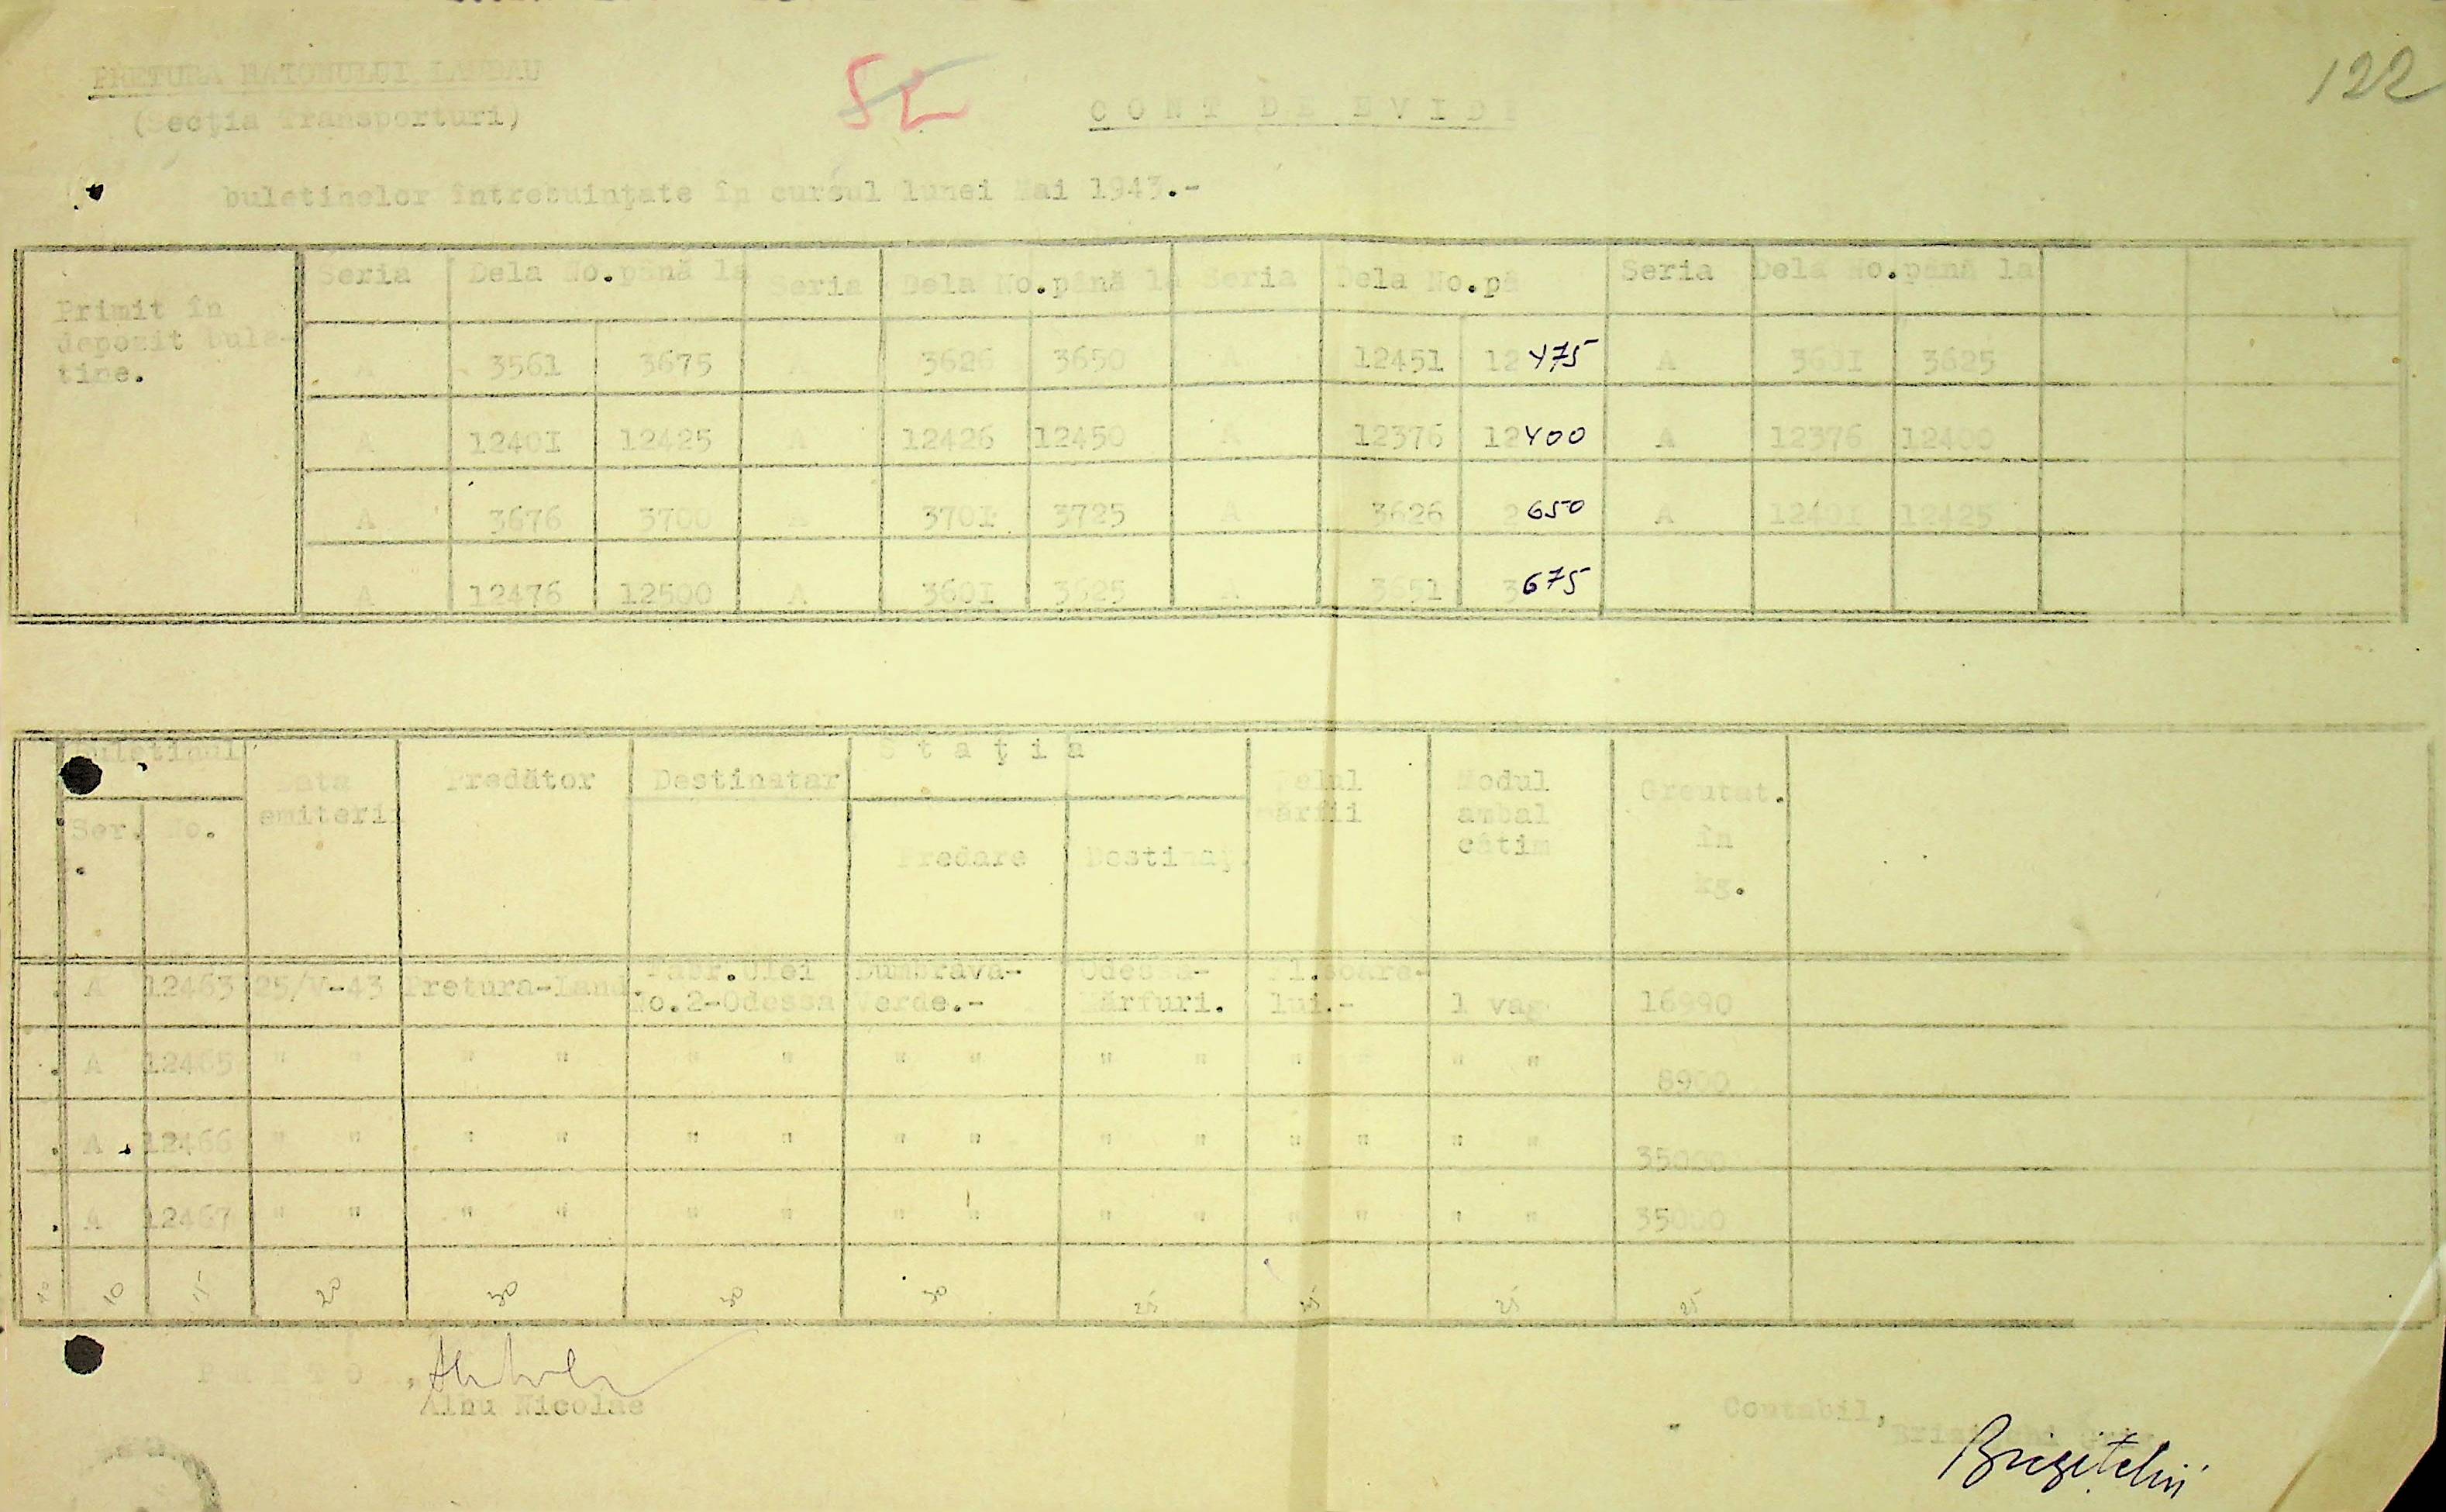 122
PRETURA RAIONULUI LANDAU
(Secţia Transporturi)
CONT DE EVID
buletinelor întrebuinţate în cursul lunei Mai 1943.-
Primit în
depozit bule-
tine.
Seria Dela No.până la Seria Dela No.până la Seria Dela No.pâ Seria Dela No.până la
A 3561 3675 3626 3650 A 12451 12475 A 3601 3625
A 12401 12425 A 12426 12450 A 12376 12400 A 12376 12400
A 3676 3700 A 3701 3725 A 3626 650 A 12401 12425
A 12476 12500 A 3601 3625 3651 3675
Ser. No.
emiterii
Predător
Destinatar
Staţia
Predare
Destinaţ.
Felul
mărfii
Modul
ambal
cătim
Greutat.
în
kg.
A 12463 25/V-43 Pretura-Land Fabr.Ulei No.2-Odessa Dumbrava-Verde.- Odessa-Mărfuri. Fl.soare-lui.- 1 vag 16990
A 12465 " " " " " " " " " " " " " 8900
A 12466 " " " " " " " " " " " " " " 35000
A 12467 " " " " " " " " " " " " " " 35000
10 10 15 20 30 30 30 25 25 25 25
PRETO ,
Albu Nicolae
Contabil,